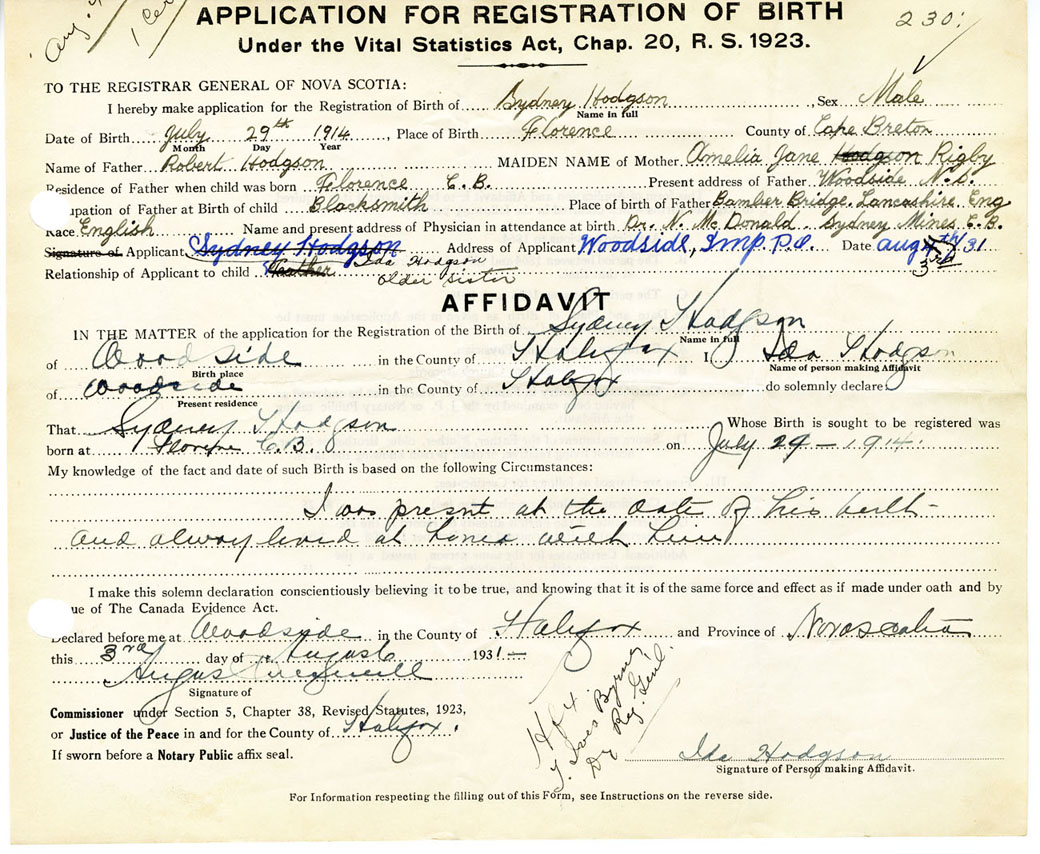 Aug. 4
1 Cer
230.
APPLICATION FOR REGISTRATION OF BIRTH
Under the Vital Statistics Act, Chap. 20, R. S. 1923.
TO THE REGISTRAR GENERAL OF NOVA SCOTIA:
I hereby make application for the Registration of Birth of Sydney Hodgson, Sex Male
Name in full
Date of Birth July 29th 1914, Place of Birth Florence County of Cape Breton
Month Day Year
Name of Father Robert Hodgson MAIDEN NAME of Mother Amelia Jane Hodgson Rigby
Residence of Father when child was born Florence C.B. Present address of Father Woodside N.S.
upation of Father at Birth of child Blacksmith Place of birth of Father Bamber Bridge, Lancashire, Eng
Race English Name and present address of Physician in attendance at birth Dr. N. McDonald Sydney Mines C.B.
Signature of Applicant Sydney Hodgson Address of Applicant Woodside, Imp. P.O. Date Aug 31
Ida Hodgson 3rd
Relationship of Applicant to child older sister
AFFIDAVIT
IN THE MATTER of the application for the Registration of the Birth of Sydney Hodgson
Name in full
of Woodside in the County of Halifax I Ida Hodgson
Birth place Name of person making Affidavit
of Woodside in the County of Halifax do solemnly declare:
Present residence
That Sydney Hodgson Whose Birth is sought to be registered was
born at Florence C.B. on July 29 - 1914.
My knowledge of the fact and date of such Birth is based on the following Circumstances:
I was present at the date of his birth -
and always lived at home with him
I make this solemn declaration conscientiously believing it to be true, and knowing that it is of the same force and effect as if made under oath and by
ue of The Canada Evidence Act.
Declared before me at Woodside in the County of Halifax and Province of Nova Scotia
this 3rd day of August 1931 -
Angus
Signature of
Commissioner under Section 5, Chapter 38, Revised Statutes, 1923,
or Justice of the Peace in and for the County of Halifax.
If sworn before a Notary Public affix seal.
Hfx
Dy Reg. Genl.
Ida Hodgson
Signature of Person making Affidavit.
For Information respecting the filling out of this Form, see Instructions on the reverse side.